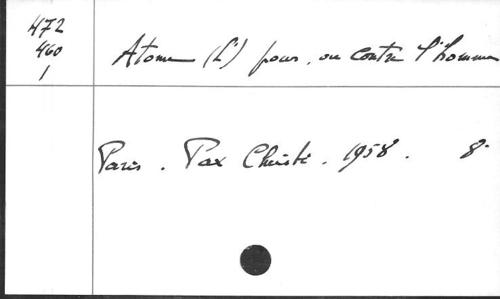 472
460
1
Atome (L') pour, ou contre l'homme
Paris. Pax Christi. 1958. 8°